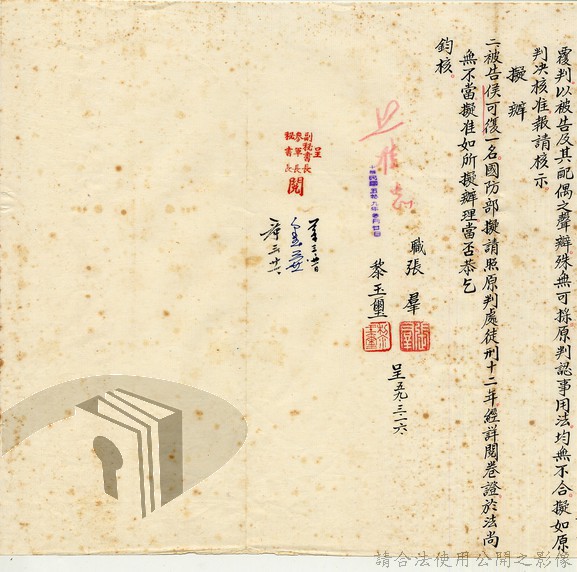 覆判以被告及其配偶之聲辯殊無可採原判認事用法均無不合擬如原
判決核准報請核示
擬辦
二被告侯可復一名國防部擬請照原判處徒刑十二年經詳閱卷證於法尚
無不當擬准如所擬辦理當否恭乞
鈞核。
職張羣
黎玉璽
呈五九、三、二六、
呈
副秘書長
參軍長
秘書長
閱
請合法使用公開之影像